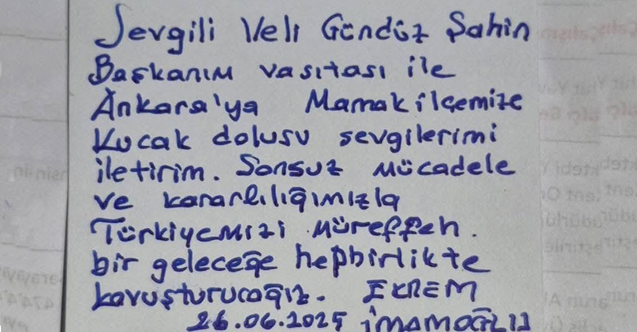 Sevgili Veli Gündüz Şahin
Başkanım vasıtası ile
Ankara'ya Mamak ilçemize
Kucak dolusu sevgilerimi
iletirim. Sonsuz mücadele
ve kararlılığımızla
Türkiyemizi müreffeh.
bir geleceğe hepbirlikte
kavuşturucağız. EKREM
26.06.2025 İMAMOĞLU